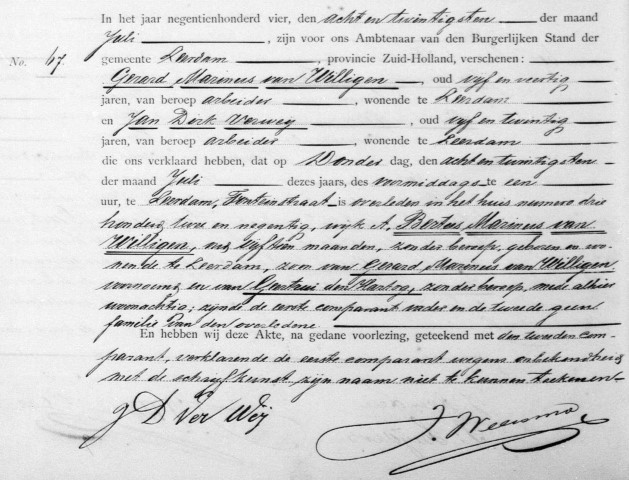 In het jaar negentienhonderd vier, den acht en twintigsten der maand
Juli, zijn voor ons Ambtenaar van den Burgerlijken Stand der
No. 67. gemeente Leerdam, provincie Zuid-Holland, verschenen:
Gerard Marinus van Willigen, oud vyf en veertig
jaren, van beroep arbeider, wonende te Leerdam
en Jan Dirk Verwey, oud vyf en twintig
jaren, van beroep arbeider, wonende te Leerdam
die ons verklaard hebben, dat op Donderdag, den acht en twintigsten
der maand Juli dezes jaars, des voormiddags te een
uur, te Leerdam, Fonteinstraat is overleden in het huis numero drie
honderd twee en negentig, wijk A, Bertus Marinus van
Willigen, oud vyftien maanden, zonder beroep, geboren en wo-
nende te Leerdam, zoon van Gerard Marinus van Willigen
voornoemd en van Geertrui den Hartog, zonder beroep, mede alhier
woonachtig; zijnde de eerste comparant vader en de tweede geen
familie van den overledene
En hebben wij deze Akte, na gedane voorlezing, geteekend met den tweeden com-
parant, verklarende de eerste comparant wegens onbekendheid
met de schryfkunst zijn naam niet te kunnen teekenen
J D Ver Weij